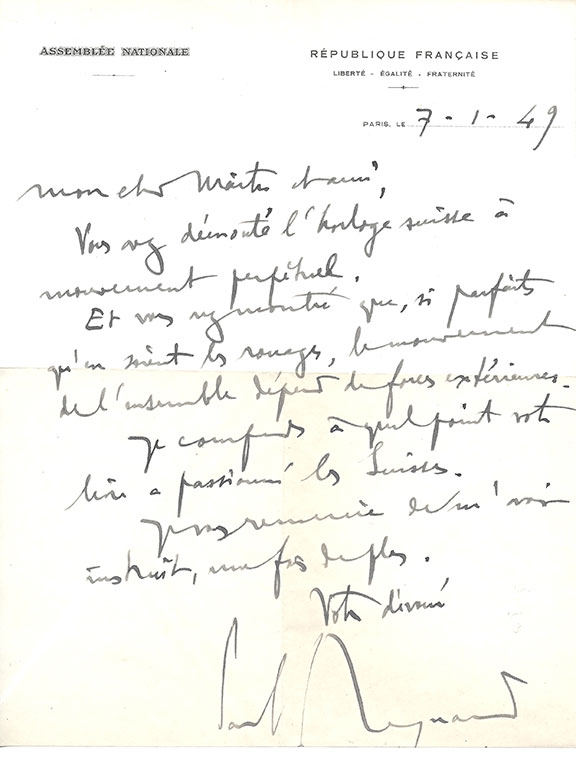 ASSEMBLÉE NATIONALE
RÉPUBLIQUE FRANÇAISE
LIBERTÉ - ÉGALITÉ - FRATERNITÉ
PARIS, LE 7-1-49
Mon cher Maître et ami,
Vous avez démonté l'horloge suisse à
mouvement perpétuel.
Et vous avez montré que, si parfaits
qu'en soient les rouages, le mouvement
de l'ensemble dépend de forces extérieures.
Je comprends à quel point votre
livre a passionné les Suisses.
Je vous remercie de m'avoir
instruit, une fois de plus.
Votre dévoué
Paul Reynaud